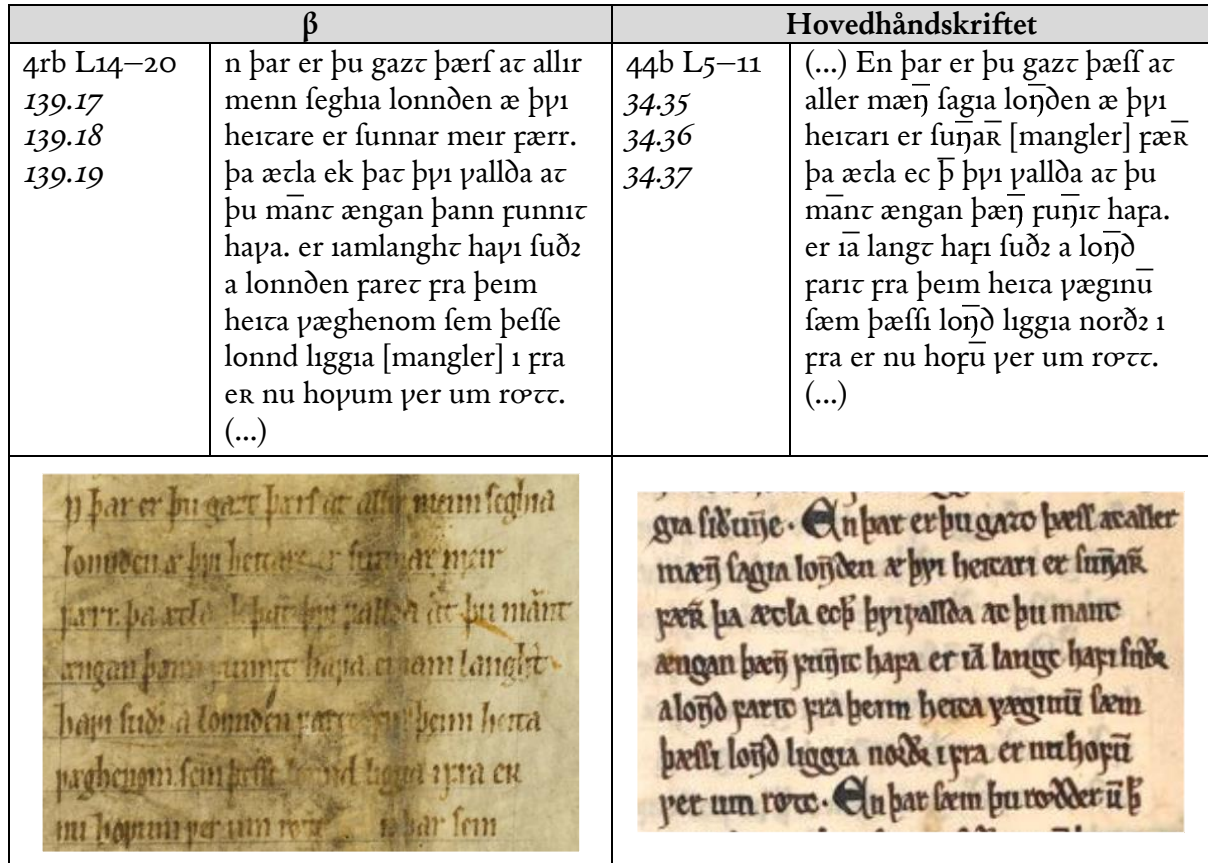 β
Hovedhåndskriftet
4rb L14–20
139.17
139.18
139.19
n þar er þu gazꞇ þærſ aꞇ allır
menn ſeghıa lonnꝺen æ þꝩı
heıꞇare er ſunnar meır ꝼærr.
þa æꞇla ek þaꞇ þꝩı ꝩallꝺa aꞇ
þu ma̅nꞇ ængan þann ꝼunnıꞇ
haꝩa. er ıamlanghꞇ haꝩı ſuðꝛ
a lonnꝺen ꝼareꞇ ꝼra þeım
heıꞇa ꝩæghenom ſem þeſſe
lonnd lıggıa [mangler] ı ꝼra
eʀ nu hoꝩum ꝩer um rꝏꞇꞇ.
(...)
44b L5–11
34.35
34.36
34.37
(...) En þar er þu gazꞇ þæſſ aꞇ
aller mæŋ̅ ſagıa loŋ̅ꝺen æ þꝩı
heıꞇarı er ſuŋ̅aʀ̅ [mangler] ꝼæʀ̅
þa æꞇla ec þ̅ þꝩı ꝩallꝺa aꞇ þu
ma̅nꞇ ængan þæŋ̅ ꝼuŋ̅ıꞇ haꝼa.
er ıa̅ langꞇ haꝼı ſuðꝛ a loŋ̅ꝺ
ꝼarıꞇ ꝼra þeım heıꞇa ꝩægınu̅
ſæm þæſſı loŋ̅ꝺ lıggıa norðꝛ ı
ꝼra er nu hoꝼu̅ ꝩer um rꝏꞇꞇ.
(...)
n þar er þu gazꞇ þærſ aꞇ allır menn ſeghıa
lonnꝺen æ þꝩı heıꞇare er ſunnar meır
ꝼærr. þa æꞇla ek þaꞇ þꝩı ꝩallꝺa aꞇ þu ma̅nꞇ
ængan þann ꝼunnıꞇ haꝩa. er ıam langhꞇ
haꝩı ſuðꝛ a lonnꝺen ꝼareꞇ ꝼra þeım heıꞇa
ꝩæghenom ſem þeſſe lonnd lıggıa ı ꝼra eʀ
nu hoꝩum ꝩer um rꝏꞇꞇ þar ſem
gıa ſıðuŋ̅e. En þar er þu gazꞇ þæſſ aꞇ aller
mæŋ̅ ſagıa loŋ̅ꝺen æ þꝩı heıꞇarı er ſuŋ̅aʀ̅
ꝼæʀ̅ þa æꞇla ec þ̅ þꝩı ꝩallꝺa aꞇ þu manꞇ
ængan þæŋ̅ ꝼuŋ̅ıꞇ haꝼa er ıa̅ langꞇ haꝼı ſuðꝛ
a loŋ̅ꝺ ꝼarıꞇ ꝼra þeım heıꞇa ꝩægınu̅ ſæm
þæſſı loŋ̅ꝺ lıggıa norðꝛ ı ꝼra er nu hoꝼu̅
ꝩer um rꝏꞇꞇ. En þar ſæm þu